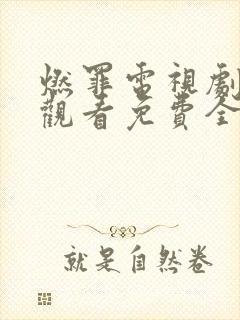 燃罪電視劇
觀看免費全
就是自然卷